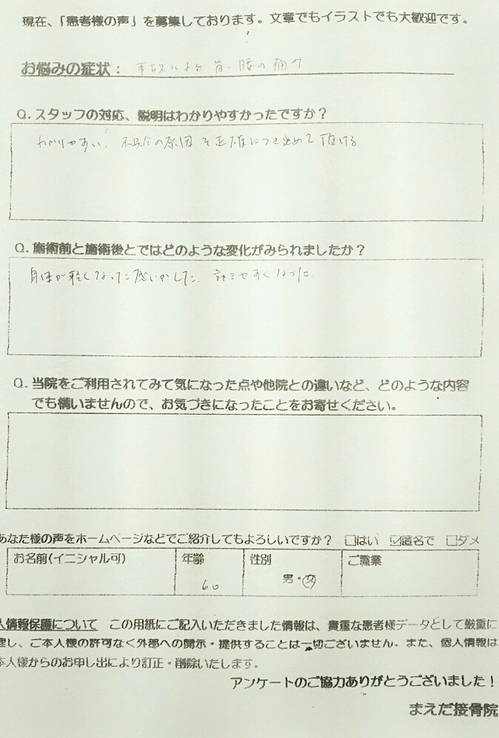 現在、「患者様の声」を募集しております。文章でもイラストでも大歓迎です。
お悩みの症状： 事故による首、腰の痛み
Q. スタッフの対応、説明はわかりやすかったですか？
わかりやすい。不具合の原因を正確につき止めて頂ける
Q. 施術前と施術後とではどのような変化がみられましたか？
身体が軽くなった感じがした。 歩きやすくなった。
Q. 当院をご利用されてみて気になった点や他院との違いなど、どのような内容
でも構いませんので、お気づきになったことをお寄せください。
あなた様の声をホームページなどでご紹介してもよろしいですか？ □はい ☑匿名で □ダメ
お名前(イニシャル可) 年齢 性別 ご職業
60 男・女
人情報保護について この用紙にご記入いただきました情報は、貴重な患者様データとして厳重に
理し、ご本人様の許可なく外部への開示・提供することは一切ございません。また、個人情報は
本人様からのお申し出により訂正・削除いたします。
アンケートのご協力ありがとうございました！
まえだ接骨院